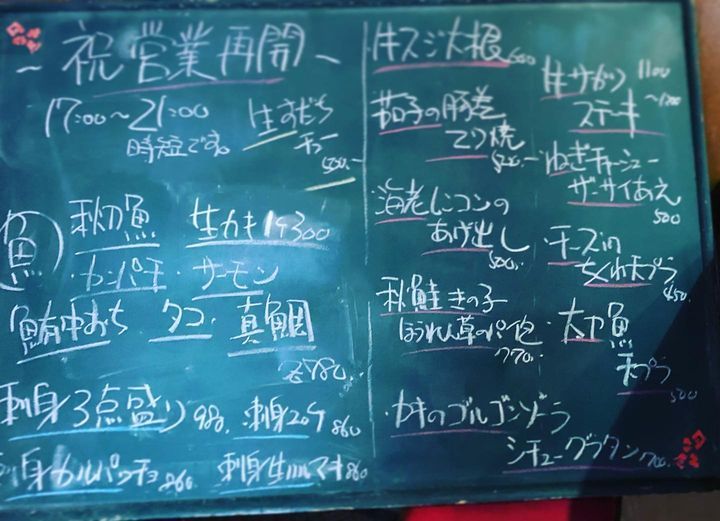 ~祝営業再開~
17:00~21:00
時短です。
生すだち
チュー
魚
秋刀魚 生カキ1ケ300
・カンパチ・サーモン
鮪中おち タコ・真鯛
刺身3点盛り980. 刺身2ケ860
刺身カルパッチョ860 刺身生ハルマキ860
牛スジ大根600
茄子の豚巻
てり焼
海老レンコンの
あげ出し
500.
秋鮭きの子
ほうれん草のパイ包
770.
牛サガリ 1100
ステーキ
ねぎチャーシュー
ザーサイあえ
500
・チーズin
ちくわ天プラ
450.
・太刀魚
天プラ
500
・カキのゴルゴンゾーラ
シチューグラタン